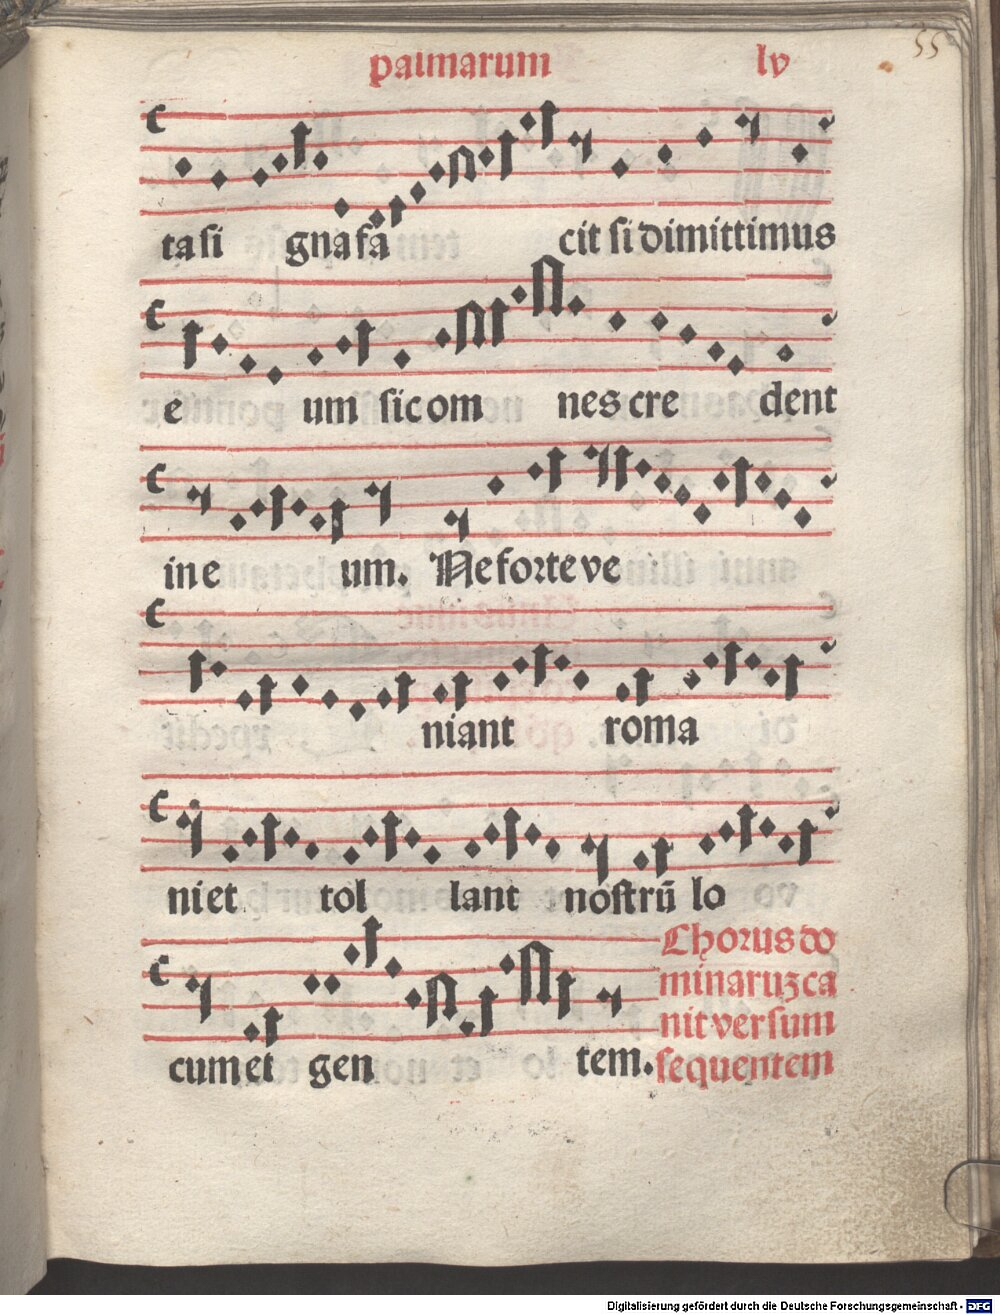 palmarum lv
55
ta si gna fa cit si dimittimus
e um sic om nes cre dent
in e um. Ne forte ve
niant roma
ni et tol lant nostrū lo
cum et gen tem.
Chorus do
minaruꝫ ca
nit versum
sequentem
Digitalisierung gefördert durch die Deutsche Forschungsgemeinschaft - DFG